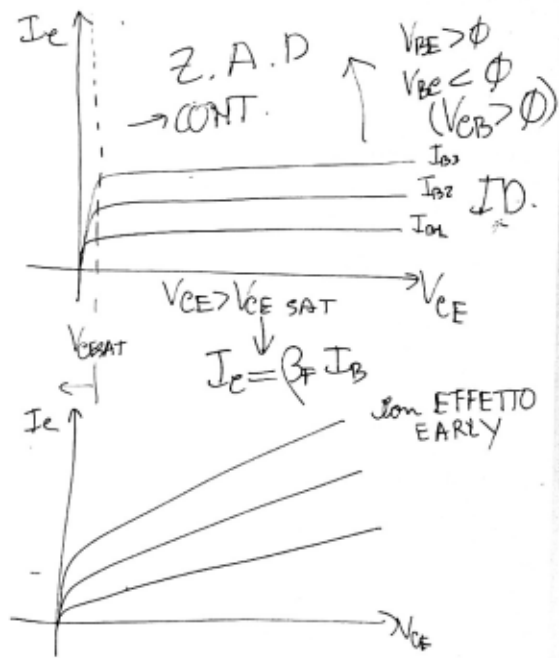 Ic
Z.A.D
→ CONT.
VBE > ϕ
VBC < ϕ
(VCB > ϕ)
IB3
IB2
IB1
ID.
VCE
VCE > VCE SAT
VCESAT
Ic = βF IB
Ic
con EFFETTO
EARLY
VCE